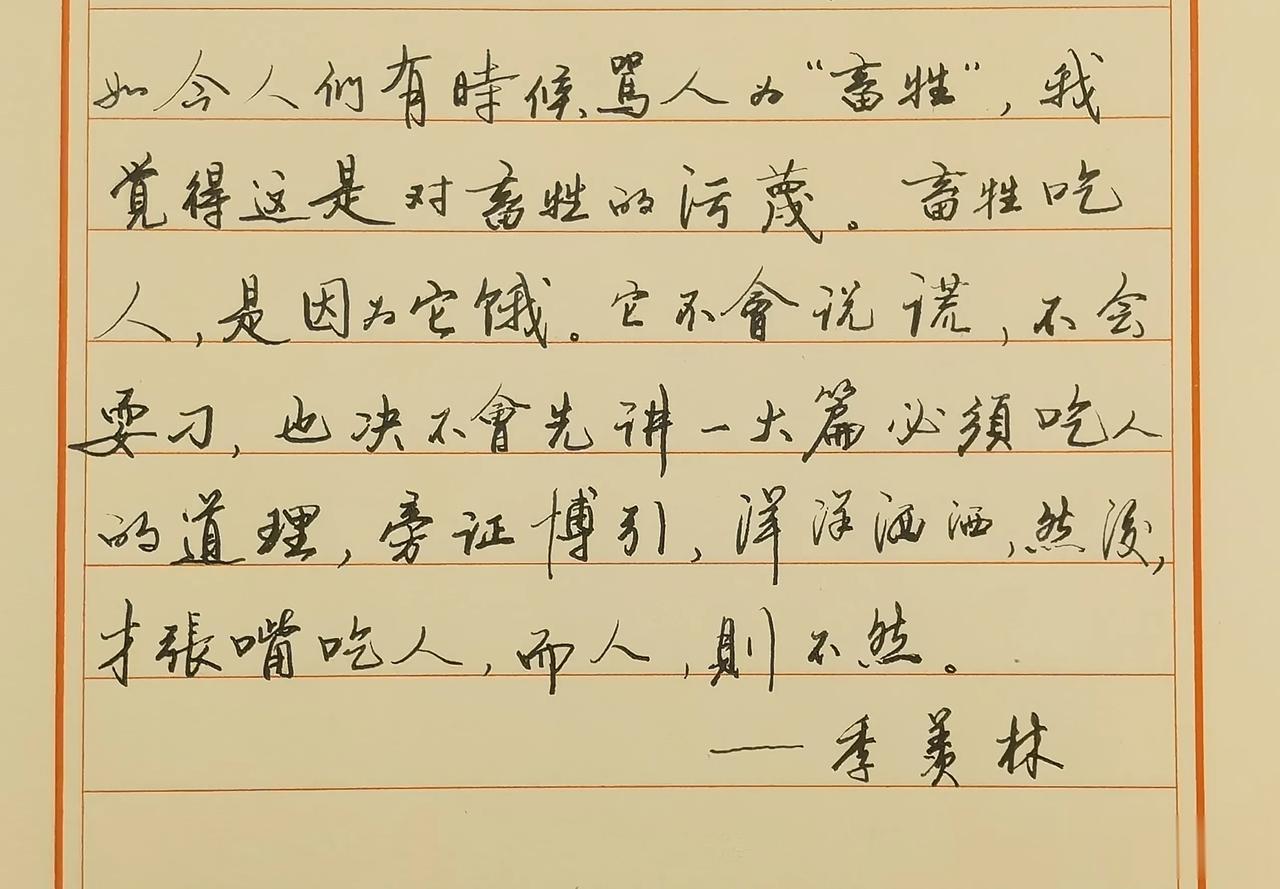 如今人們有時候,駡人为“畜牲”,我
覚得这是对畜牲的污蔑。畜牲吃
人,是因为它饿。它不會说谎,不会
耍刁,也决不會先讲一大篇必須吃人
的道理,旁证博引,洋洋洒洒,然後,
才張嘴吃人,而人,則不然。
——季羡林